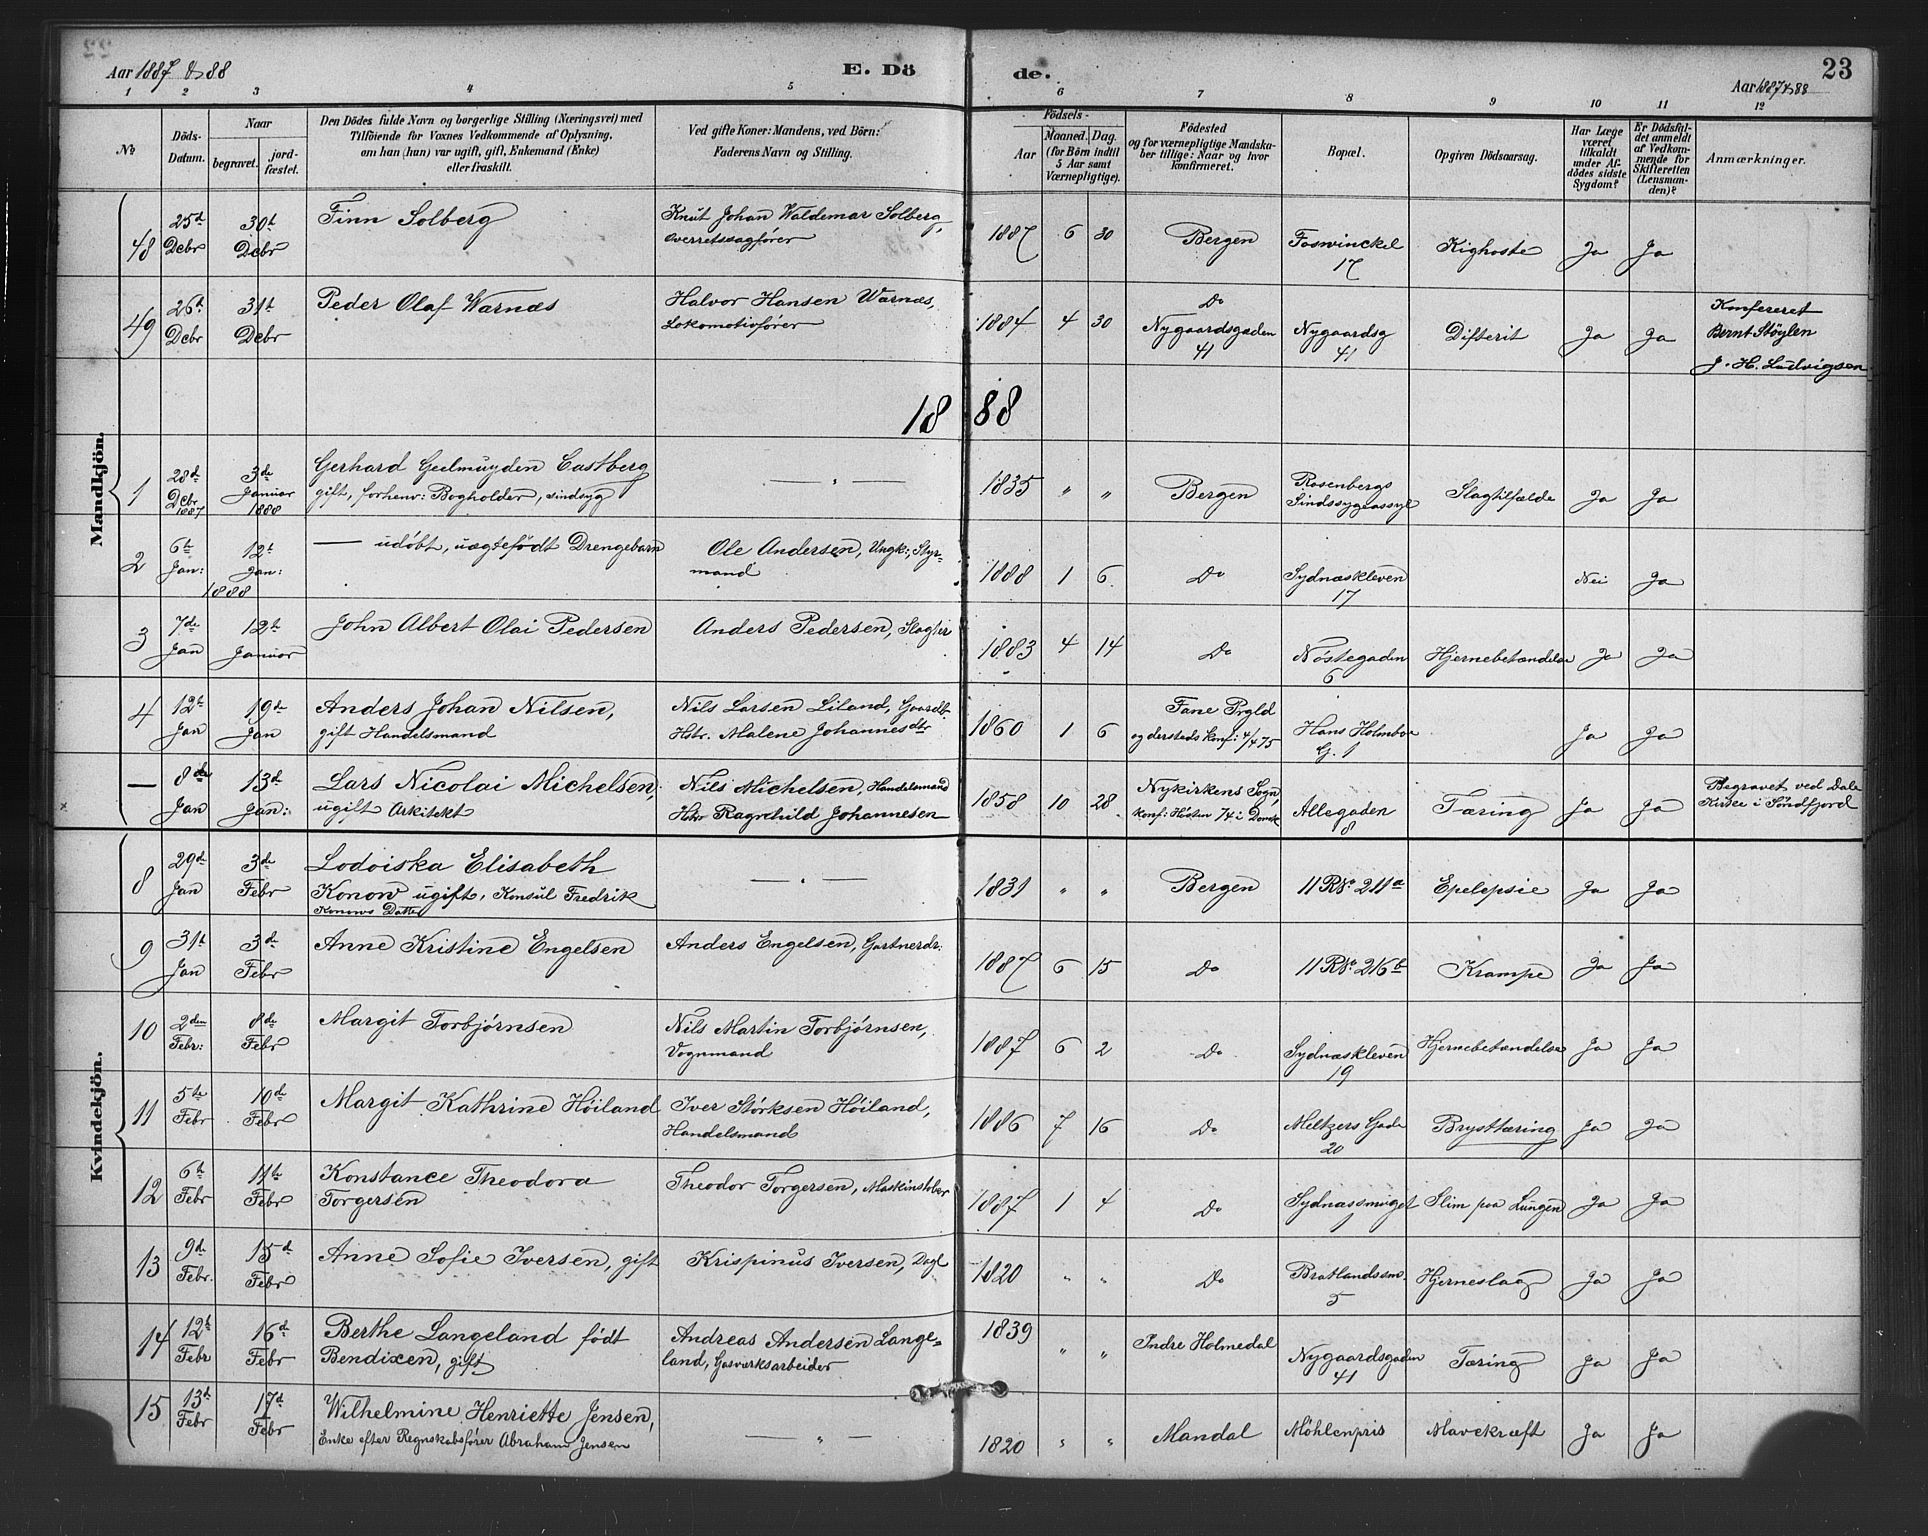 Aar 1887 & 88
E. Dö
de.
Aar 1887 & 88
23
1 2 3 4 5 6 7 8 9 10 11 12
No
Döds-
Datum.
Naar
begravet.
jord-
fæstet.
Den Dödes fulde Navn og borgerlige Stilling (Næringsvei) med
Tilföiende for Voxnes Vedkommende af Oplysning,
om han (hun) var ugift, gift, Enkemand (Enke)
eller fraskilt.
Ved gifte Koner: Mandens, ved Börn:
Faderens Navn og Stilling.
Födsels-
Aar
Maaned. Dag.
(for Börn indtil
5 Aar samt
Værnepligtige).
Födested
og for værnepligtige Mandska-
ber tillige: Naar og hvor
konfirmeret.
Bopæl.
Opgiven Dödsaarsag.
Har Læge
været
tilkaldt
under Af-
dödes sidste
Sygdom?
Er Dödsfal-
det anmeldt
af Vedkom-
mende for
Skifteretten
(Lensman-
den)?
Anmærkninger.
Mandkjön.
48 25d Debr 30t Debr Finn Solberg Knut Johan Waldemar Solberg,
Overretssagfører
1887 6 30 Bergen Foswinckel
17
Kighoste Ja Ja
49 26t Debr 31t Debr Peder Olaf Warnæs Halvor Hansen Warnæs,
Lokomotivfører
1884 4 30 Do
Nygaardsgaden
41
Nygaardsg
41
Difterit Ja Ja Konfereret
Bernt Støylen
J. H. Ludvigsen
1888
1 28d Debr 1887 3de Januar 1888 Gerhard Geelmuyden Castberg
gift, forhenv: Bogholder, sindsyg
— " —
1835 " " Bergen Rosenbergs
Sindssygeassyl
Slagtilfælde Ja Ja
2 6te Jan: 12t Jan: 1888 — udöbt, uægtefödt Drengebarn Ole Andersen, Ungk:, Styr-
mand
1888 1 6 Do Sydnæskleven
17
Nei Ja
3 7de Jan 12te Januar John Albert Olai Pedersen Anders Pedersen, Slagter
1883 4 14 Do Nøstegaden
6
Hjernebetændelse Ja Ja
4 12te Jan 19de Jan Anders Johan Nilsen,
gift Handelsmand
Nils Larsen Liland, Gaardbr.
Hstr. Malene Johannesdtr
1860 1 6 Fane Prgld
og dersteds Konf: 4/4 75
Hans Holmboe
G. 1
Ja Ja
— 8de Jan 13d Jan: Lars Nicolai Michelsen,
ugift Arkitekt
Nils Michelsen, Handelsmand
Hstr Ragnchild Johannesen
1858 10 28 Nykirkens Sogn,
konf: Høsten 74 i Domk
Allegaden
8
Tæring Ja Ja Begravet ved Dale
Kirke i Søndfjord
Kvindekjön.
8 29de Jan 3de Febr Lodoiska Elisabeth
Konow ugift, Konsul Fredrik
Konows Datter
— " —
1831 " " Bergen 11 R No 211a Epelepsie Ja Ja
9 31t Jan 3de Febr Anne Kristine Engelsen Anders Engelsen, Gartnerdr.
1887 6 15 Do 11 R No 216b Krampe Ja Ja
10 2den Febr: 8de Febr Margit Torbjørnsen Nils Martin Torbjørnsen,
Vognmand
1887 6 2 Do Sydnæskleven
19
Hjernebetændelse Ja Ja
11 5te Febr 10de Febr Margit Kathrine Høiland Iver Størksen Høiland,
Handelsmand
1886 7 16 Do Meltzers Gade
20
Brysttæring Ja Ja
12 6te Febr 11te Febr Konstance Theodora
Torgersen
Theodor Torgersen, Maskinstober
1887 1 4 Do Sydnæssmuget Slim paa Lungen Ja Ja
13 9de Febr. 15d Febr Anne Sofie Iversen, gift Krispinus Iversen, Dagl
1820 " " Do Bratlandssm.
5
Hjerneslag Ja Ja
14 12te Febr 16de Febr Berthe Langeland født
Bendixen, gift
Andreas Andersen Lange-
land, Gasværksarbeider
1839 " " Indre Holmedal Nygaardsgaden
41
Tæring Ja Ja
15 13d Febr 17d Febr Wilhelmine Henriette Jensen,
Enke efter Regnskabsfører Abraham Jensen
— " —
1820 " " Mandal Møhlenpris Mavekræft Ja Ja